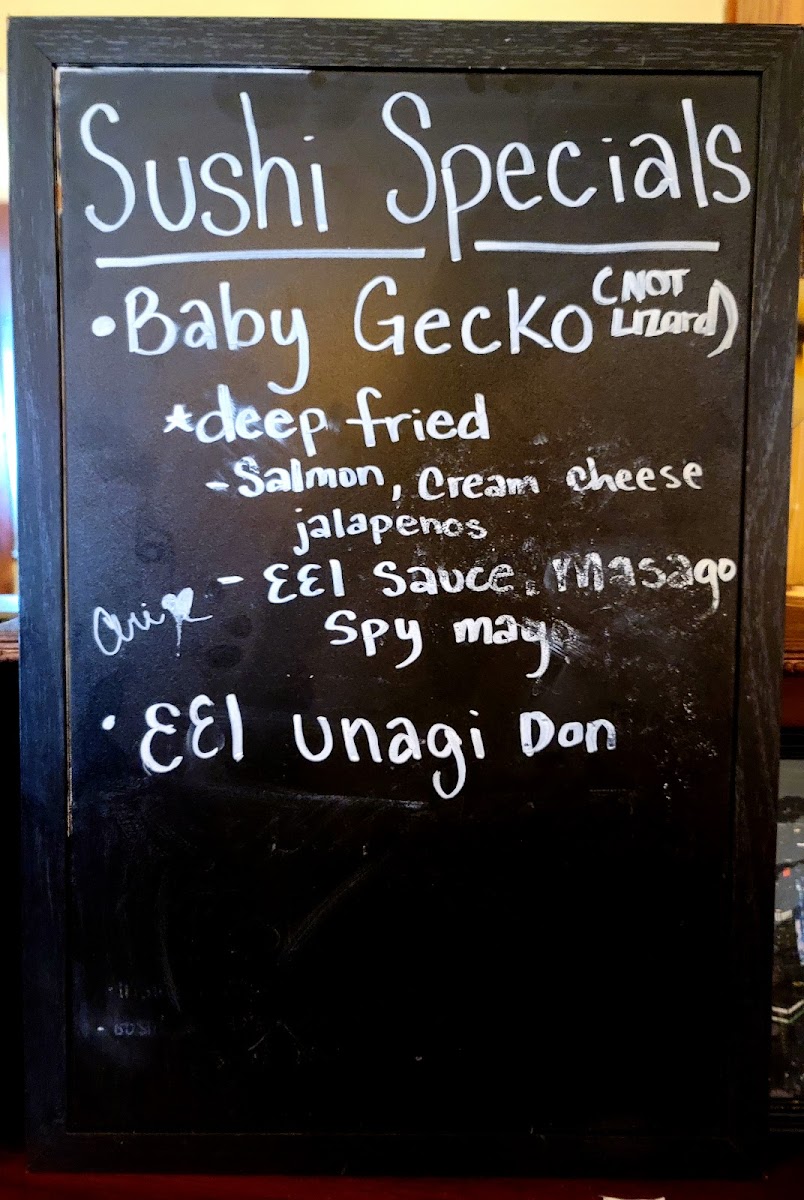 Sushi Specials
• Baby Gecko (NOT Lizard)
*deep fried
- Salmon, Cream cheese
jalapenos
- EEl Sauce, Masago
Spy mayo
• EEl unagi Don